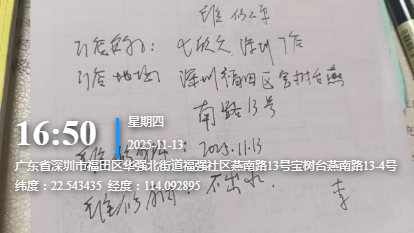 维修工单
门店名称：七欣天深圳门店
门店地址 深圳福田区宝树台燕
南路13号
16:50
星期四
2025-11-13
2025.11.13
广东省深圳市福田区华强北街道福强社区燕南路13号宝树台燕南路13-4号
纬度：22.543435 经度：114.092895
不出水.
李